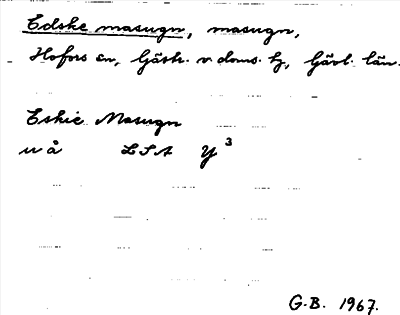 Edske masugn, masugn,
Hofors sn, Gästr. v. doms. hg, Gävl. län.
Eskie Masugn
u å LSA Y 3
G.B. 1967.